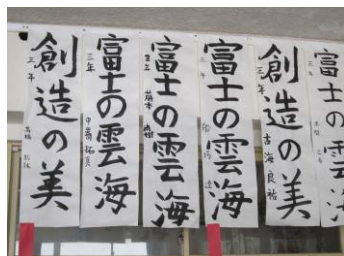 創造の美
三年
富士の雲海
三年
富士の雲海
三年
富士の雲海
三年
創造の美
三年
古海良祐
富士の
三年